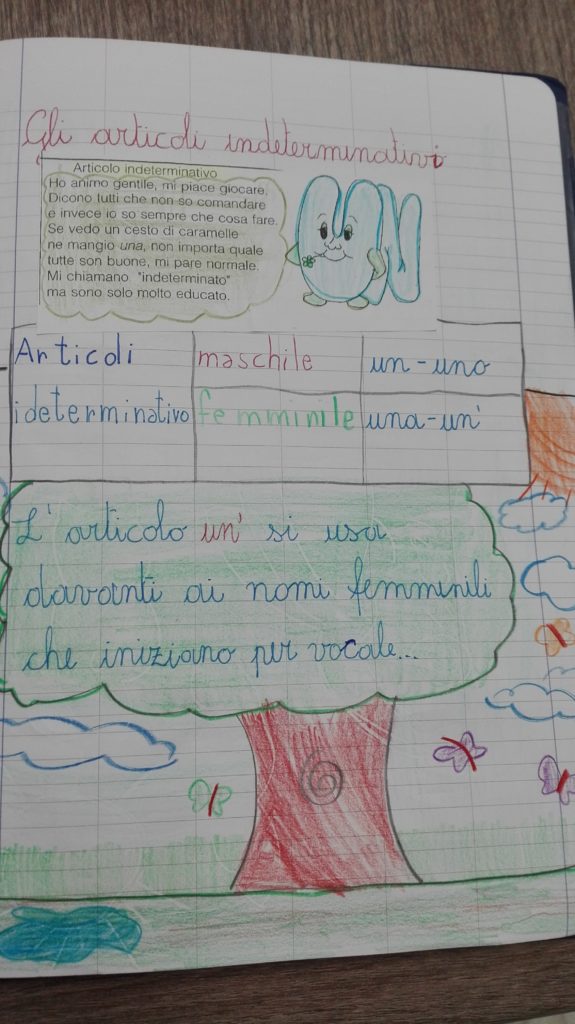 Gli articoli indeterminativi
Articolo indeterminativo
Ho animo gentile, mi piace giocare.
Dicono tutti che non so comandare
e invece io so sempre che cosa fare.
Se vedo un cesto di caramelle
ne mangio una, non importa quale
tutte son buone, mi pare normale.
Mi chiamano "indeterminato"
ma sono solo molto educato.
UN
Articoli maschile un-uno
ideterminativo femminile una-un'
L'articolo un' si usa
davanti ai nomi femminili
che iniziano per vocale...